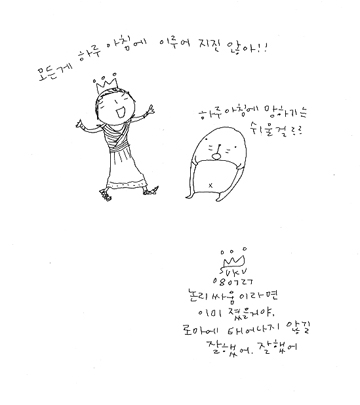 모든게 하루 아침에 이루어 지진 않아!!
하루아침에 망하기는
쉬울걸??
SUKU
080727
논리싸움이라면
이미 졌을거야.
로마에 태어나지 않길
잘했어. 잘했어